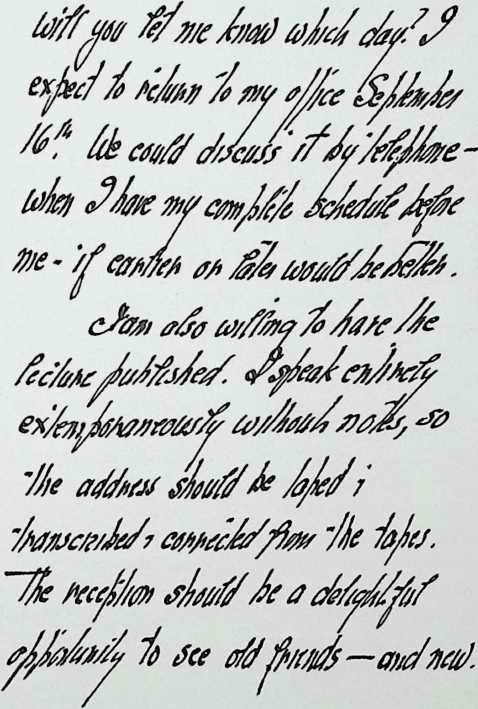 will you let me know which day? I
expect to return to my office September
16th. We could discuss it by telephone –
when I have my complete schedule before
me - if earlier or later would be better.
I am also willing to have the
lecture published. I speak entirely
extemporaneously without notes, so
the address should be taped &
transcribed & corrected from the tapes.
The reception should be a delightful
opportunity to see old friends — and new.